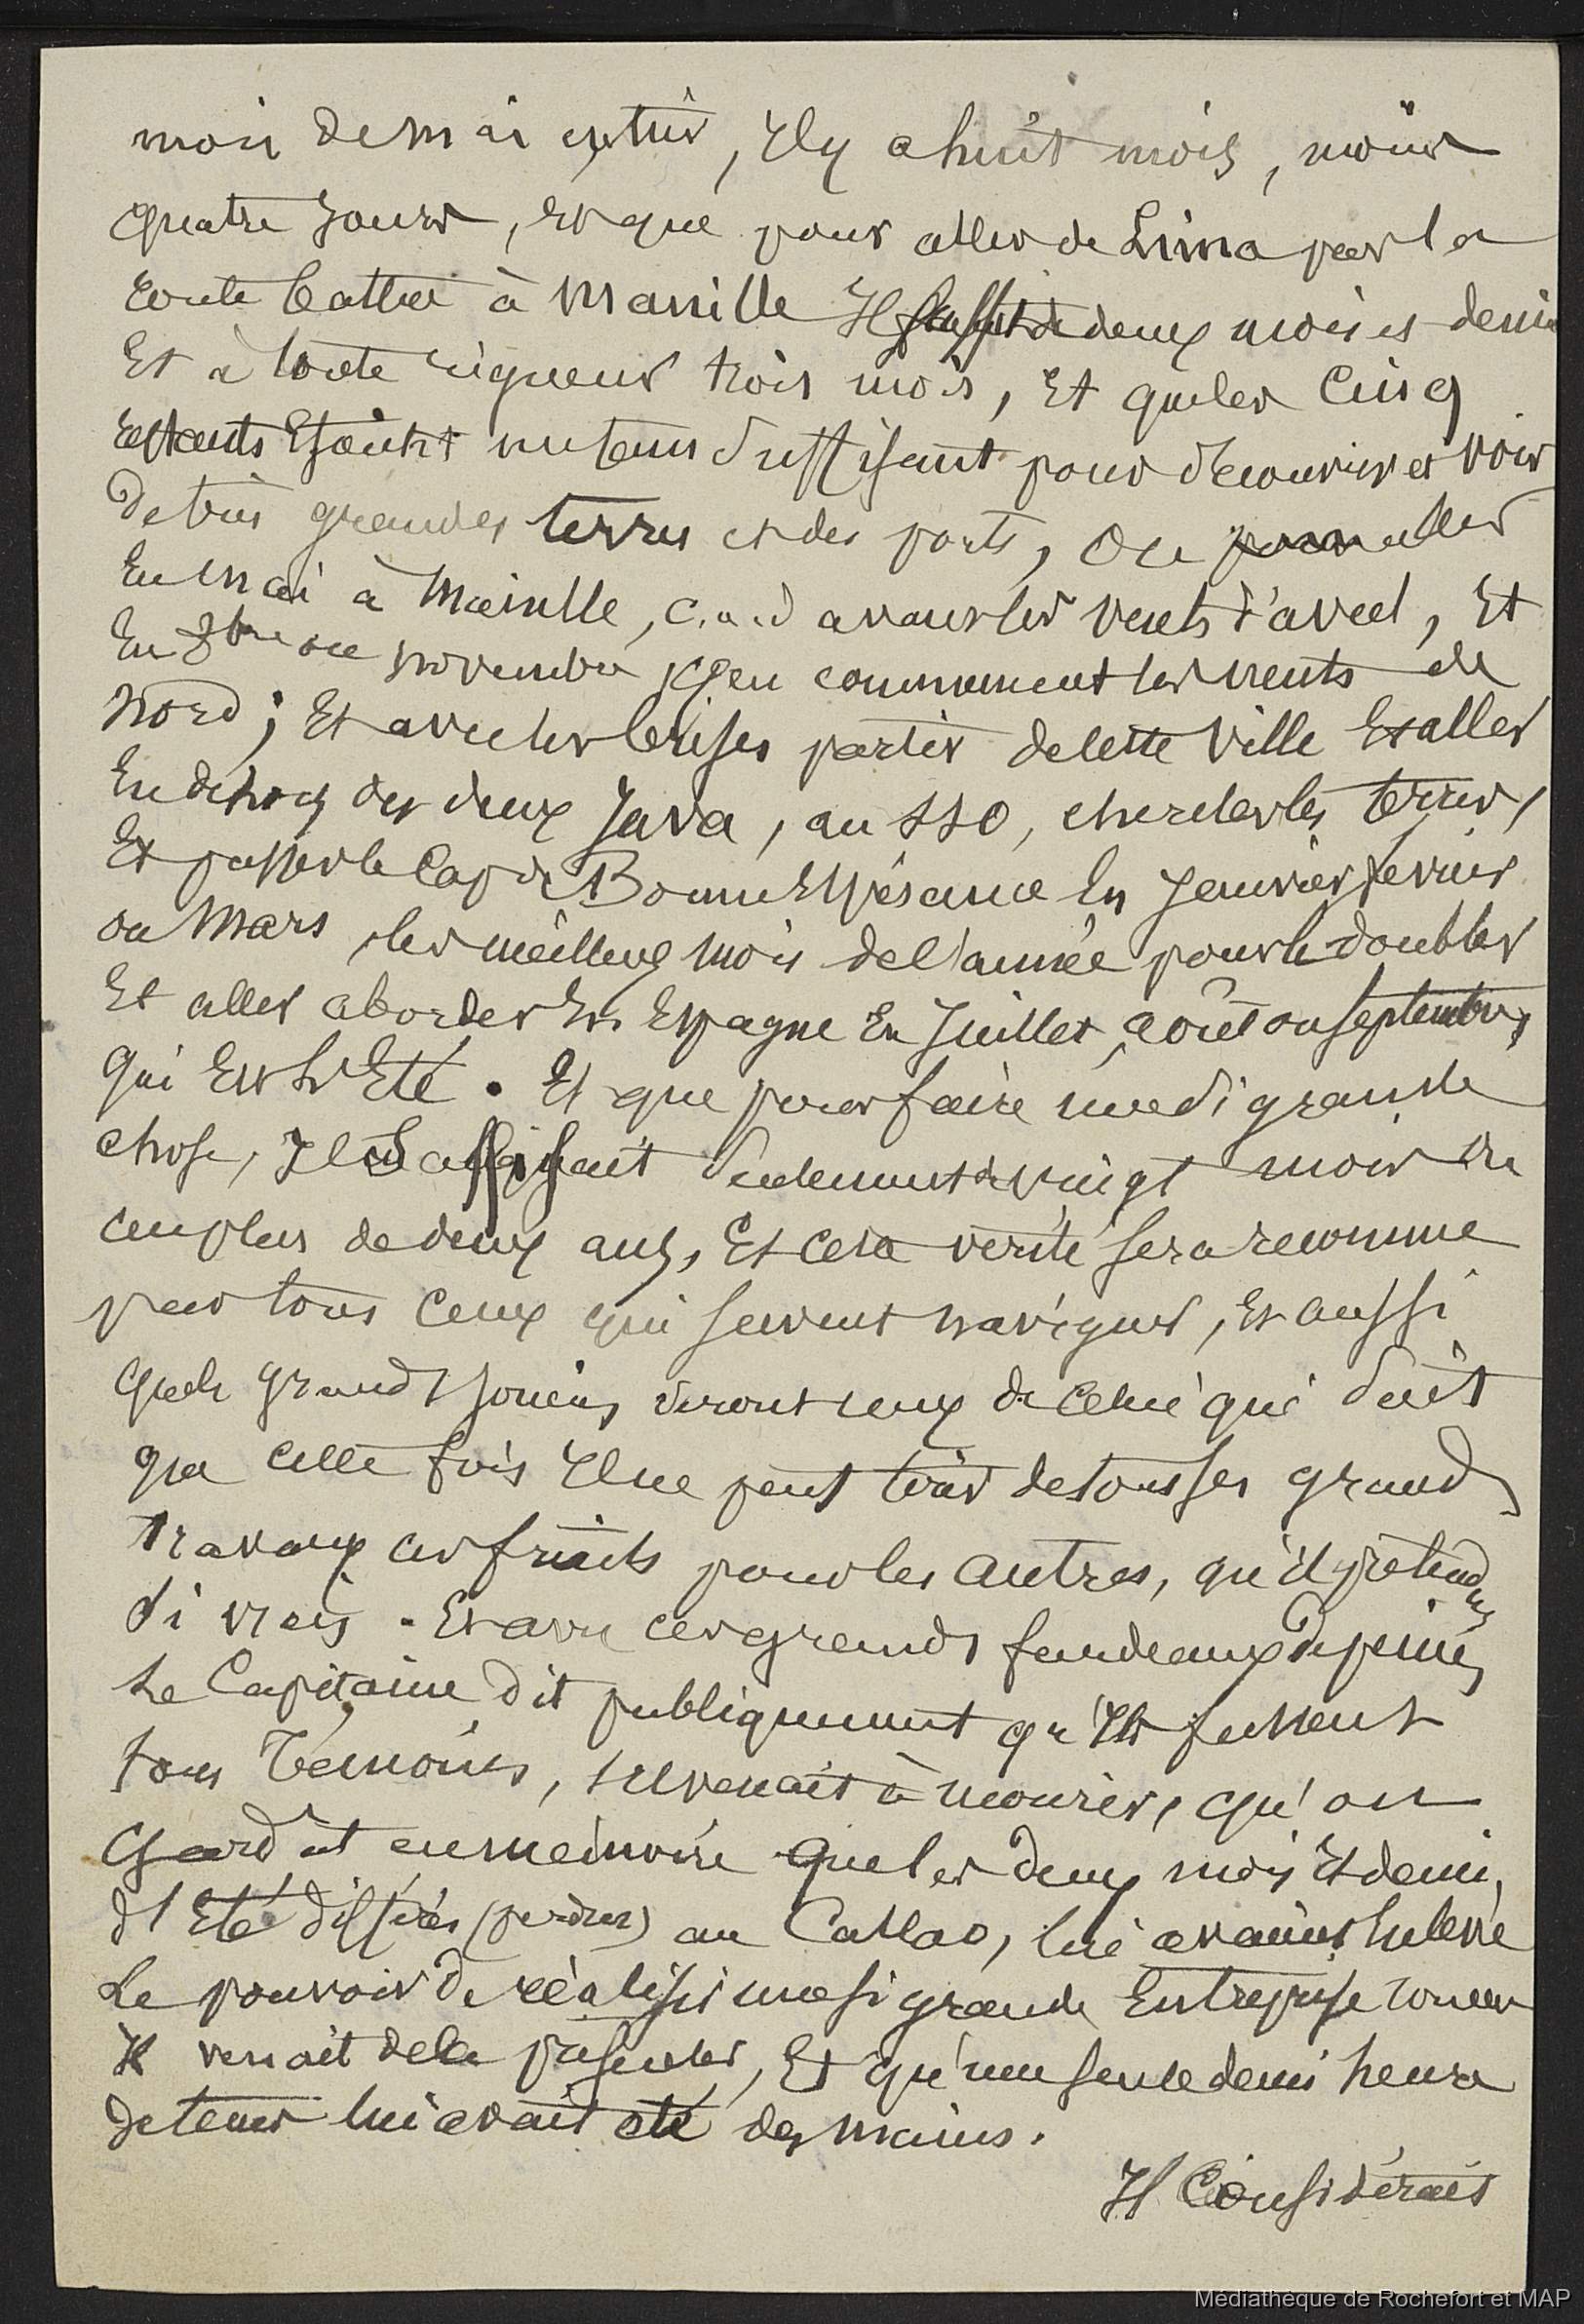 mois de mai entier, Il y a huit mois, moins
quatre jours, et que pour aller de Lima par la
route battue à Manille Il suffit de deux mois et demi
Et à toute rigueur trois mois, Et que les Cinq
restants Etaient un tems suffisant pour découvrir et voir
de très grandes terres et des ports, ou pour aller
En Mai à Manille, c.a.d avant les vents d'aval, Et
En 8bre ou novembre commencent les vents de
Nord; Et avec les brises partir de cette Ville Et aller
En dehors des deux Java, au SSO, chercher les terres,
Et passer le Cap de Bonne Espérance En Janvier, fevrier
ou Mars, les meilleurs mois de l'année pour le doubler
Et aller aborder En Espagne En Juillet, août ou septembre,
qui Est l'Eté. Et que pour faire une si grande
chose, Il suffisait seulement de vingt mois ou
au plus de deux ans, Et cette verité sera reconnue
par tous Ceux qui savent naviguer, Et aussi
quels grands soucis seront ceux de Celui qui sait
que cette fois Il ne peut tirer de tous ses grands
travaux ces fruits pour les autres, qu'il prétendait
si vrais. Et avec ces grands fardeaux de peines
Le Capitaine dit publiquement qu'Ils fussent
tous Témoins, s'il venait à mourir, qu'on
Gardat en mémoire que les deux mois Et demi,
d'Eté différés (perdus) au Callao, lui avaient Enlevé
Le pouvoir de réaliser une si grande Entreprise comme
Il venait de la présenter, Et qu'une seule demi heure
de tems lui avait oté des mains.
Il Considérait
Médiathèque de Rochefort et MAP